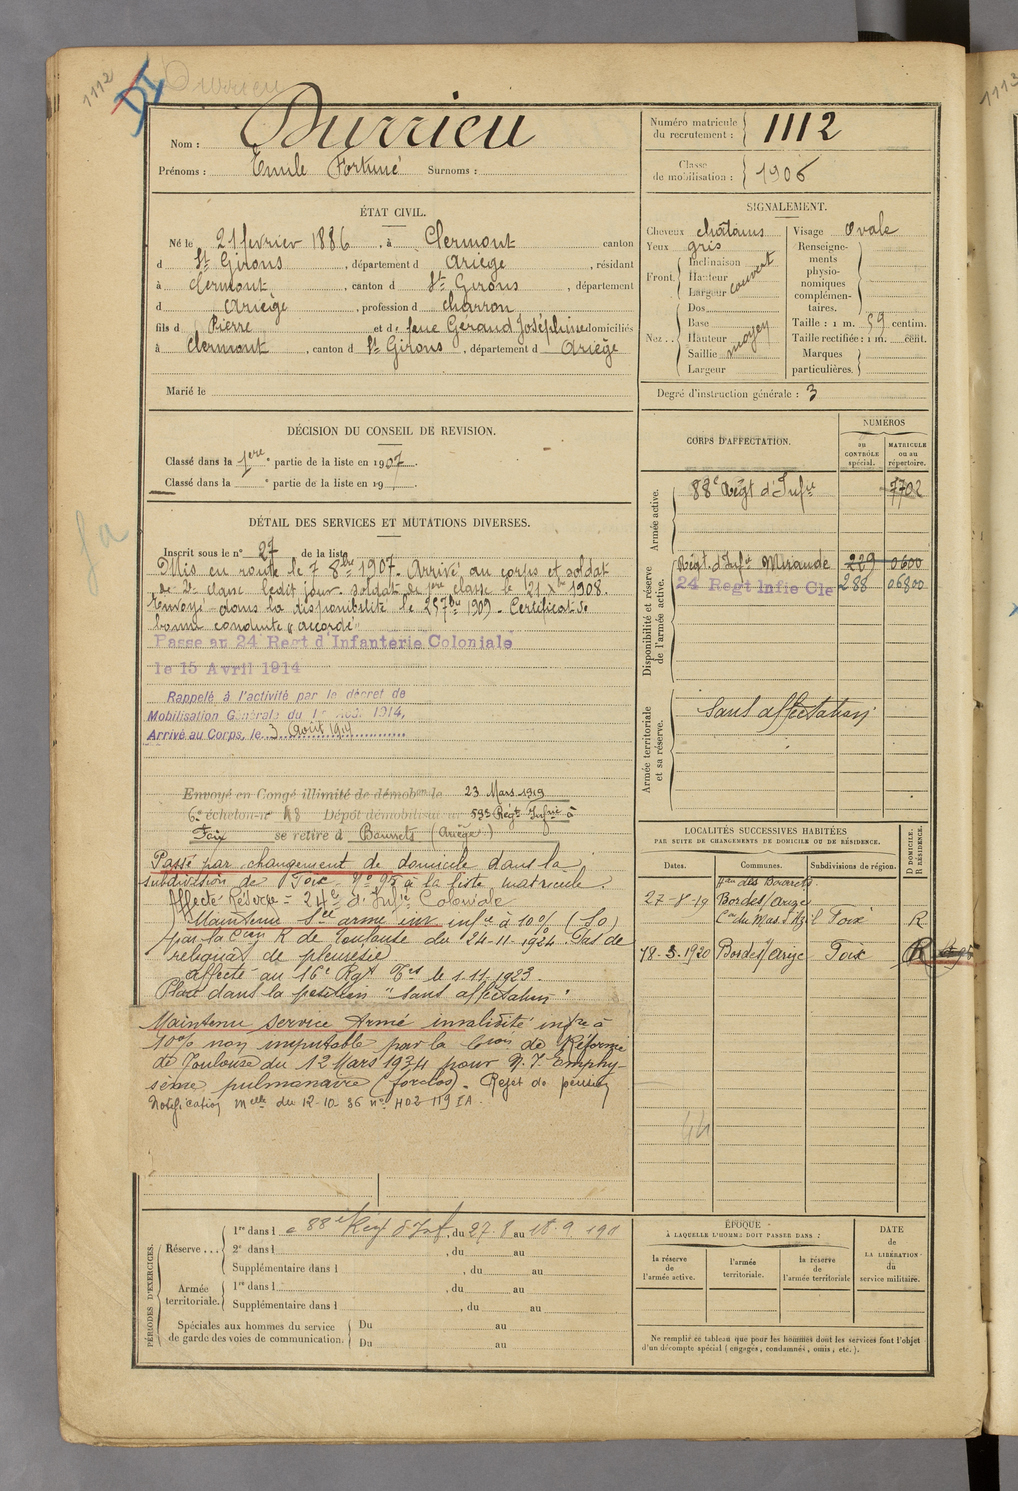 1112
DI
Durrieu
Nom : Durrieu
Prénoms : Emile Fortuné Surnoms :
Numéro matricule
du recrutement : 1112
Classe
de mobilisation : 1906
ÉTAT CIVIL.
Né le 21 fevrier 1886, à Clermont canton
d St Girons, département d Ariège, résidant
à Clermont, canton d St Girons, département
d Ariège, profession d charron
fils d Pierre et d feue Géraud Joséphine domiciliés
à Clermont, canton d St Girons, département d Ariège
Marié le
SIGNALEMENT.
Cheveux châtains
Yeux gris
Front. Inclinaison
Hauteur
Largeur
couvert
Nez . . Dos
Base
Hauteur
Saillie
Largeur
moyen
Visage Ovale
Renseigne-
ments
physio-
nomiques
complémen-
taires.
Taille : 1 m. 59 centim.
Taille rectifiée : 1 m. cent.
Marques
particulières.
Degré d'instruction générale : 3
DÉCISION DU CONSEIL DE REVISION.
Classé dans la 1ere partie de la liste en 1907.
Classé dans la e partie de la liste en 19 .
DÉTAIL DES SERVICES ET MUTATIONS DIVERSES.
Inscrit sous le n° 27 de la liste
Mis en route le 7 8bre 1907. Arrivé au corps et soldat
de 2e classe ledit jour. Soldat de 1ere classe le 21 Xbre 1908.
Envoyé dans la disponibilité le 25 7bre 1909. Certificat de
bonne conduite "accordé"
Passe au 24 Regt d'Infanterie Coloniale
le 15 Avril 1914
Rappelé à l'activité par le décret de
Mobilisation Générale du 1er Août 1914,
Arrivé au Corps, le 3 Août 1914
Envoyé en Congé illimité de démobon le 23 Mars 1919
6e échelon n° Dépôt démobilisateur 59e Régt Infrie à
Foix se retire à (Ariège)
Passé par changement de domicile dans la
subdivision de Foix. N° 95 à la liste matricule.
Affecté Réserve = 24e d'Infie Coloniale
Maintenu Sce armé inv. infre à 10% (SO)
par la Cion R de Toulouse du 24-11-1924 Pas de
reliquat de pleurésie
Affecté au 16e Rgt Tes le 1.11.1923.
Placé dans la position "sans affectation"
Maintenu service Armé invalidité infre à
10% non imputable par la Cion de Réforme
de Toulouse du 12 Mars 1934 pour N. I. Emphy-
sème pulmonaire (forclos). Rejet de pension
Notification Melle du 12-10-36 n° 402 119 IA.
CORPS D'AFFECTATION.
NUMÉROS
au
CONTRÔLE
spécial.
MATRICULE
ou au
répertoire.
Armée active.
88e Régt d'Infie 7702
Disponibilité et réserve
de l'armée active.
Régt. d'Infie Mirande 229 0600
24 Regt Infie Cle 288 06800
Armée territoriale
et sa réserve.
Sans affectation
LOCALITÉS SUCCESSIVES HABITÉES
PAR SUITE DE CHANGEMENTS DE DOMICILE OU DE RÉSIDENCE.
Dates. Communes. Subdivisions de région. D DOMICILE. R RÉSIDENCE.
27-8-19 Bordes/Arize
Con du Mas d'Azil Foix R
18.3.1920 Bordes/Arize Foix R
PÉRIODES D'EXERCICES.
Réserve . . . 1re dans l e 88e Regt d'Inf, du 27.8 au 18.9.191
2e dans l , du au
Supplémentaire dans l , du au
Armée
territoriale. 1re dans l , du au
Supplémentaire dans l , du au
Spéciales aux hommes du service
de garde des voies de communication. Du au
Du au
ÉPOQUE
À LAQUELLE L'HOMME DOIT PASSER DANS :
la réserve
de
l'armée active.
l'armée
territoriale.
la réserve
de
l'armée territoriale
DATE
de
LA LIBÉRATION
du
service militaire.
Ne remplir ce tableau que pour les hommes dont les services font l'objet
d'un décompte spécial (engagés, condamnés, omis, etc.).
1113